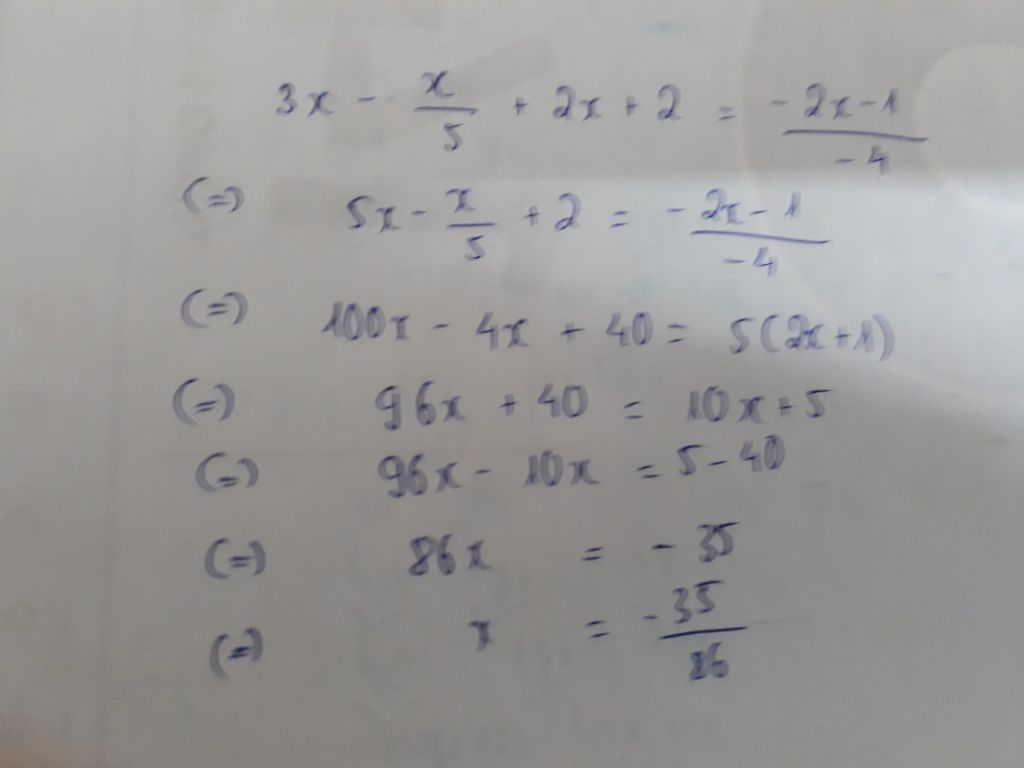 3x - x/5 + 2x + 2 = -2x-1/-4
(=) 5x - x/5 + 2 = -2x-1/-4
(=) 100x - 4x + 40 = 5(2x+1)
(=) 96x + 40 = 10x+5
(=) 96x - 10x = 5-40
(=) 86x = -35
(=) x = -35/86